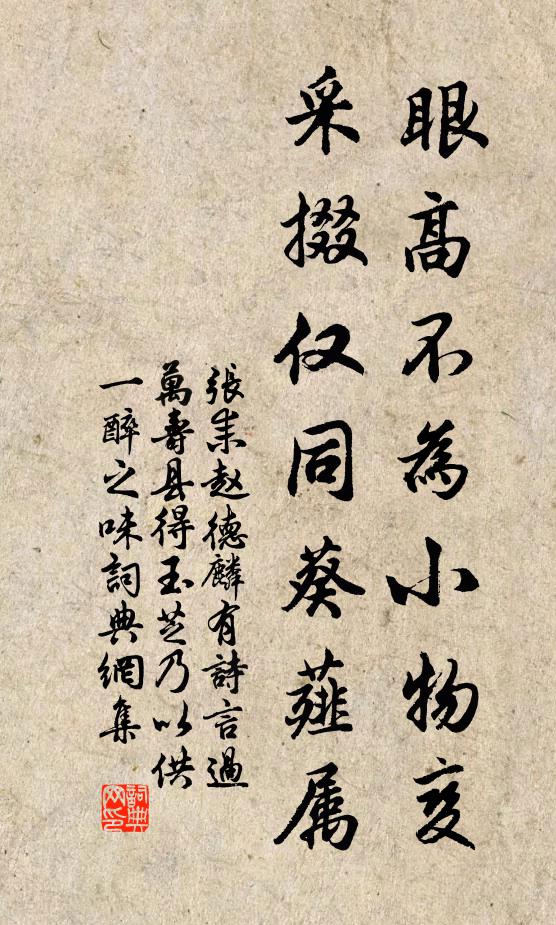 眼高不为小物变
采掇仅同葵薤属
張耒赵德麟有詩言過
萬壽县得玉芝乃以供
一醉之味詞典網集
詞典网印